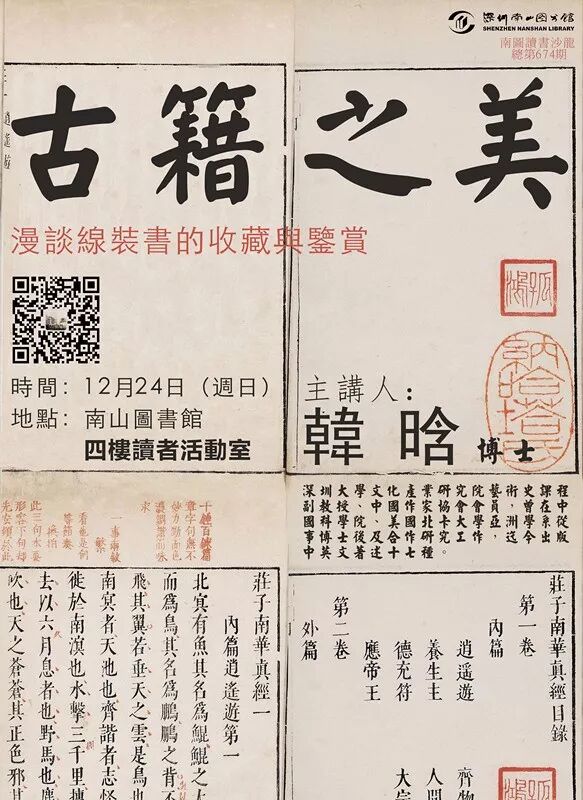 深圳南山圖書館
SHENZHEN NANSHAN LIBRARY
南圖讀書沙龍
總第674期
古籍之美
漫談線裝書的收藏與鑒賞
時間：12月24日（週日）
地點：南山圖書館
四樓讀者活動室
主講人：
韓晗 博士
深圳大學文化產業研究院藝術史課程
副教授、中國作家協會會員，曾在中
國科學院、美國北卡大學亞洲學系從
事博士後及合作研究工作，迄今出版
中英文著述十七種。
莊子南華真經目錄
第一卷
內篇
逍遙遊 齊物
養生主 人間
德充符 大宗
應帝王
第二卷
外篇
莊子南華真經一
內篇逍遙遊第一
北冥有魚其名為鯤鯤之大
而為鳥其名為鵬鵬之背不
飛其翼若垂天之雲是鳥也
南冥者天池也齊諧者志怪
徙於南溟也水擊三千里摶
去以六月息者也野馬也塵
吹也天之蒼蒼其正色邪其